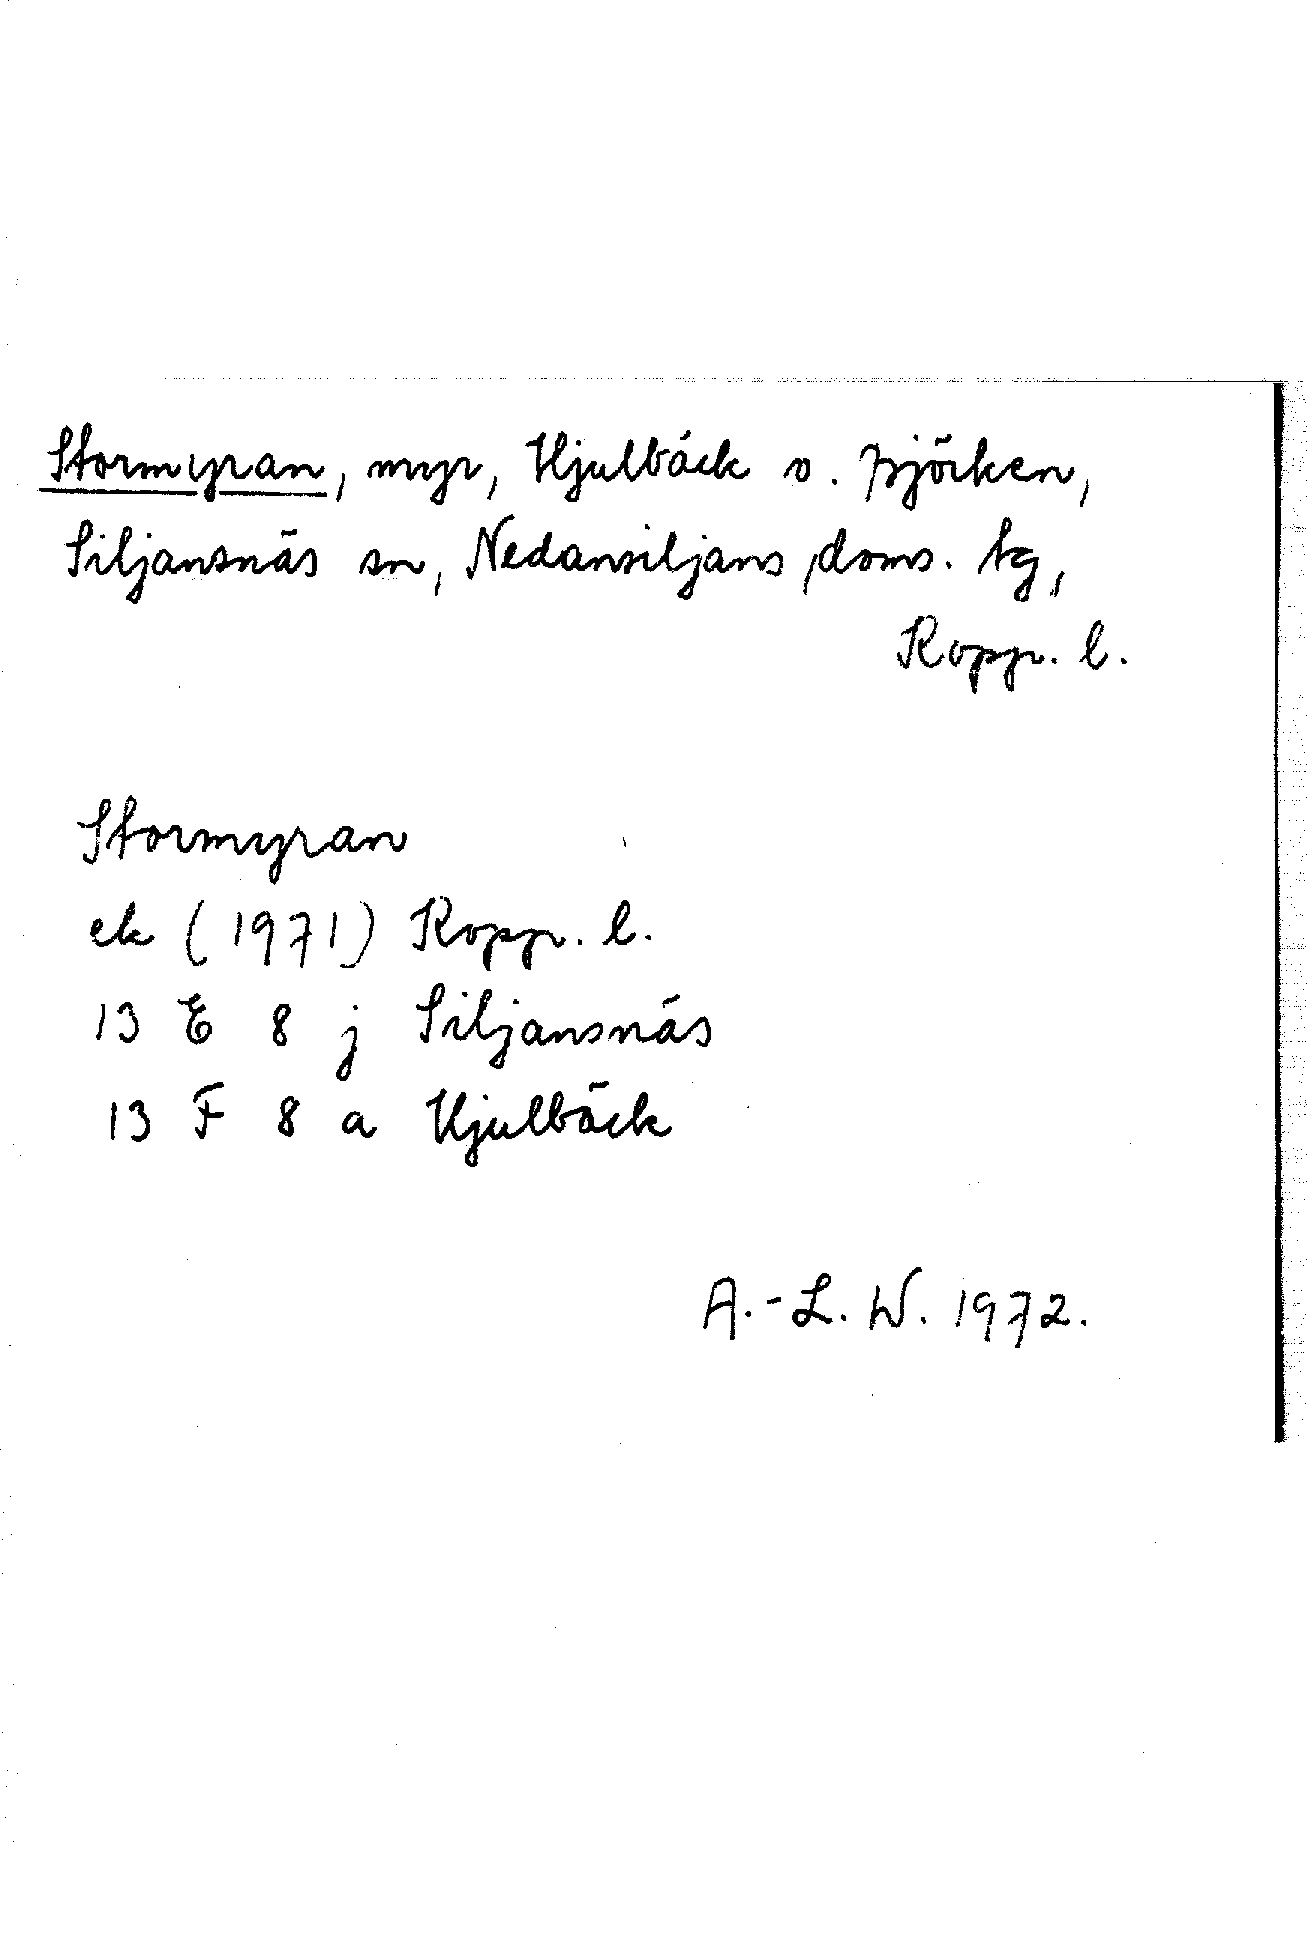 Stormyran, myr, Hjulbäck o. Björken,
Siljansnäs sn, Nedansiljans doms. tg,
Kopp. l.
Stormyran
ek (1971) Kopp. l.
13 E 8 j Siljansnäs
13 F 8 a Hjulbäck
A.-L. W. 1972.